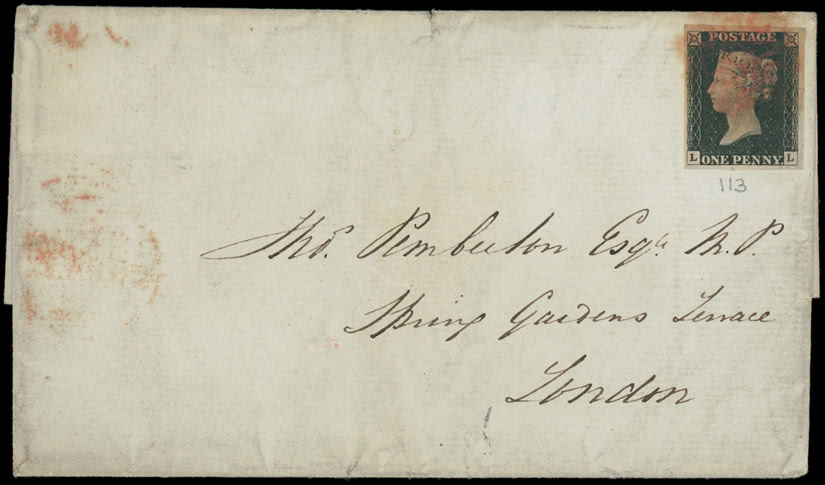 POSTAGE
L ONE PENNY. L
113
Thos. Pemberton Esqr. M.P.
Spring Gardens Terrace
London